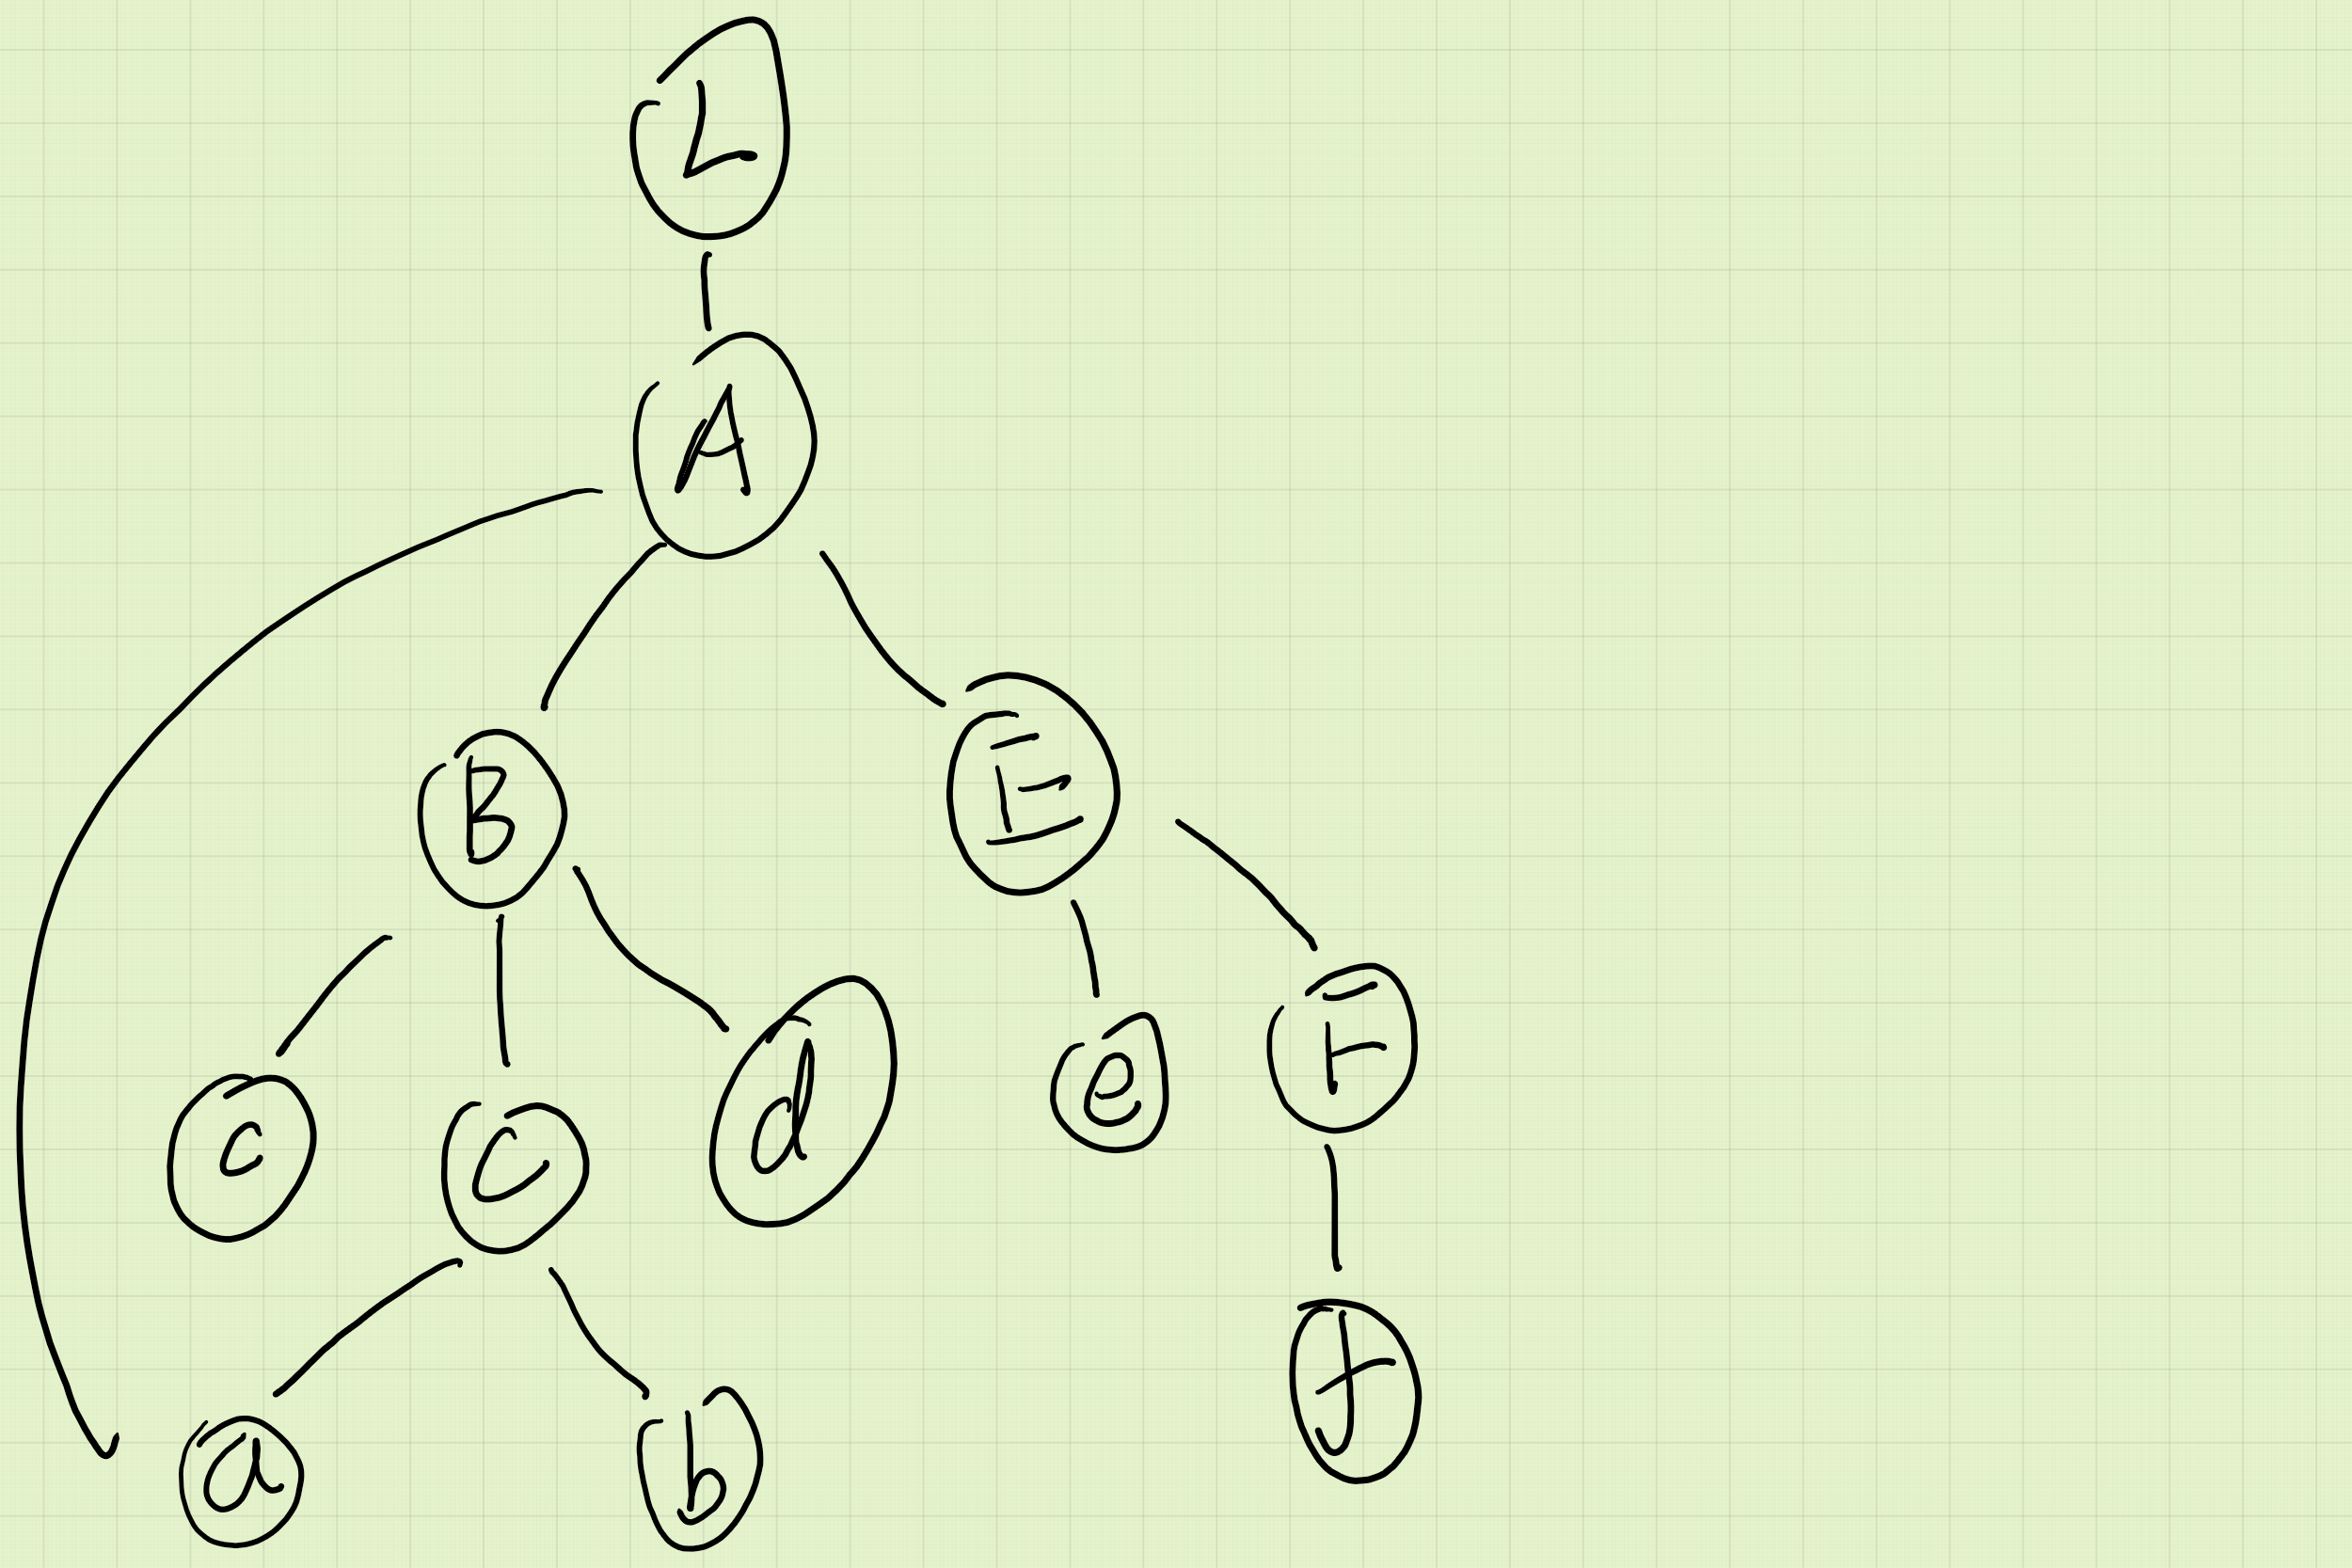 L
A
B
E
c
C
d
e
F
a
b
f